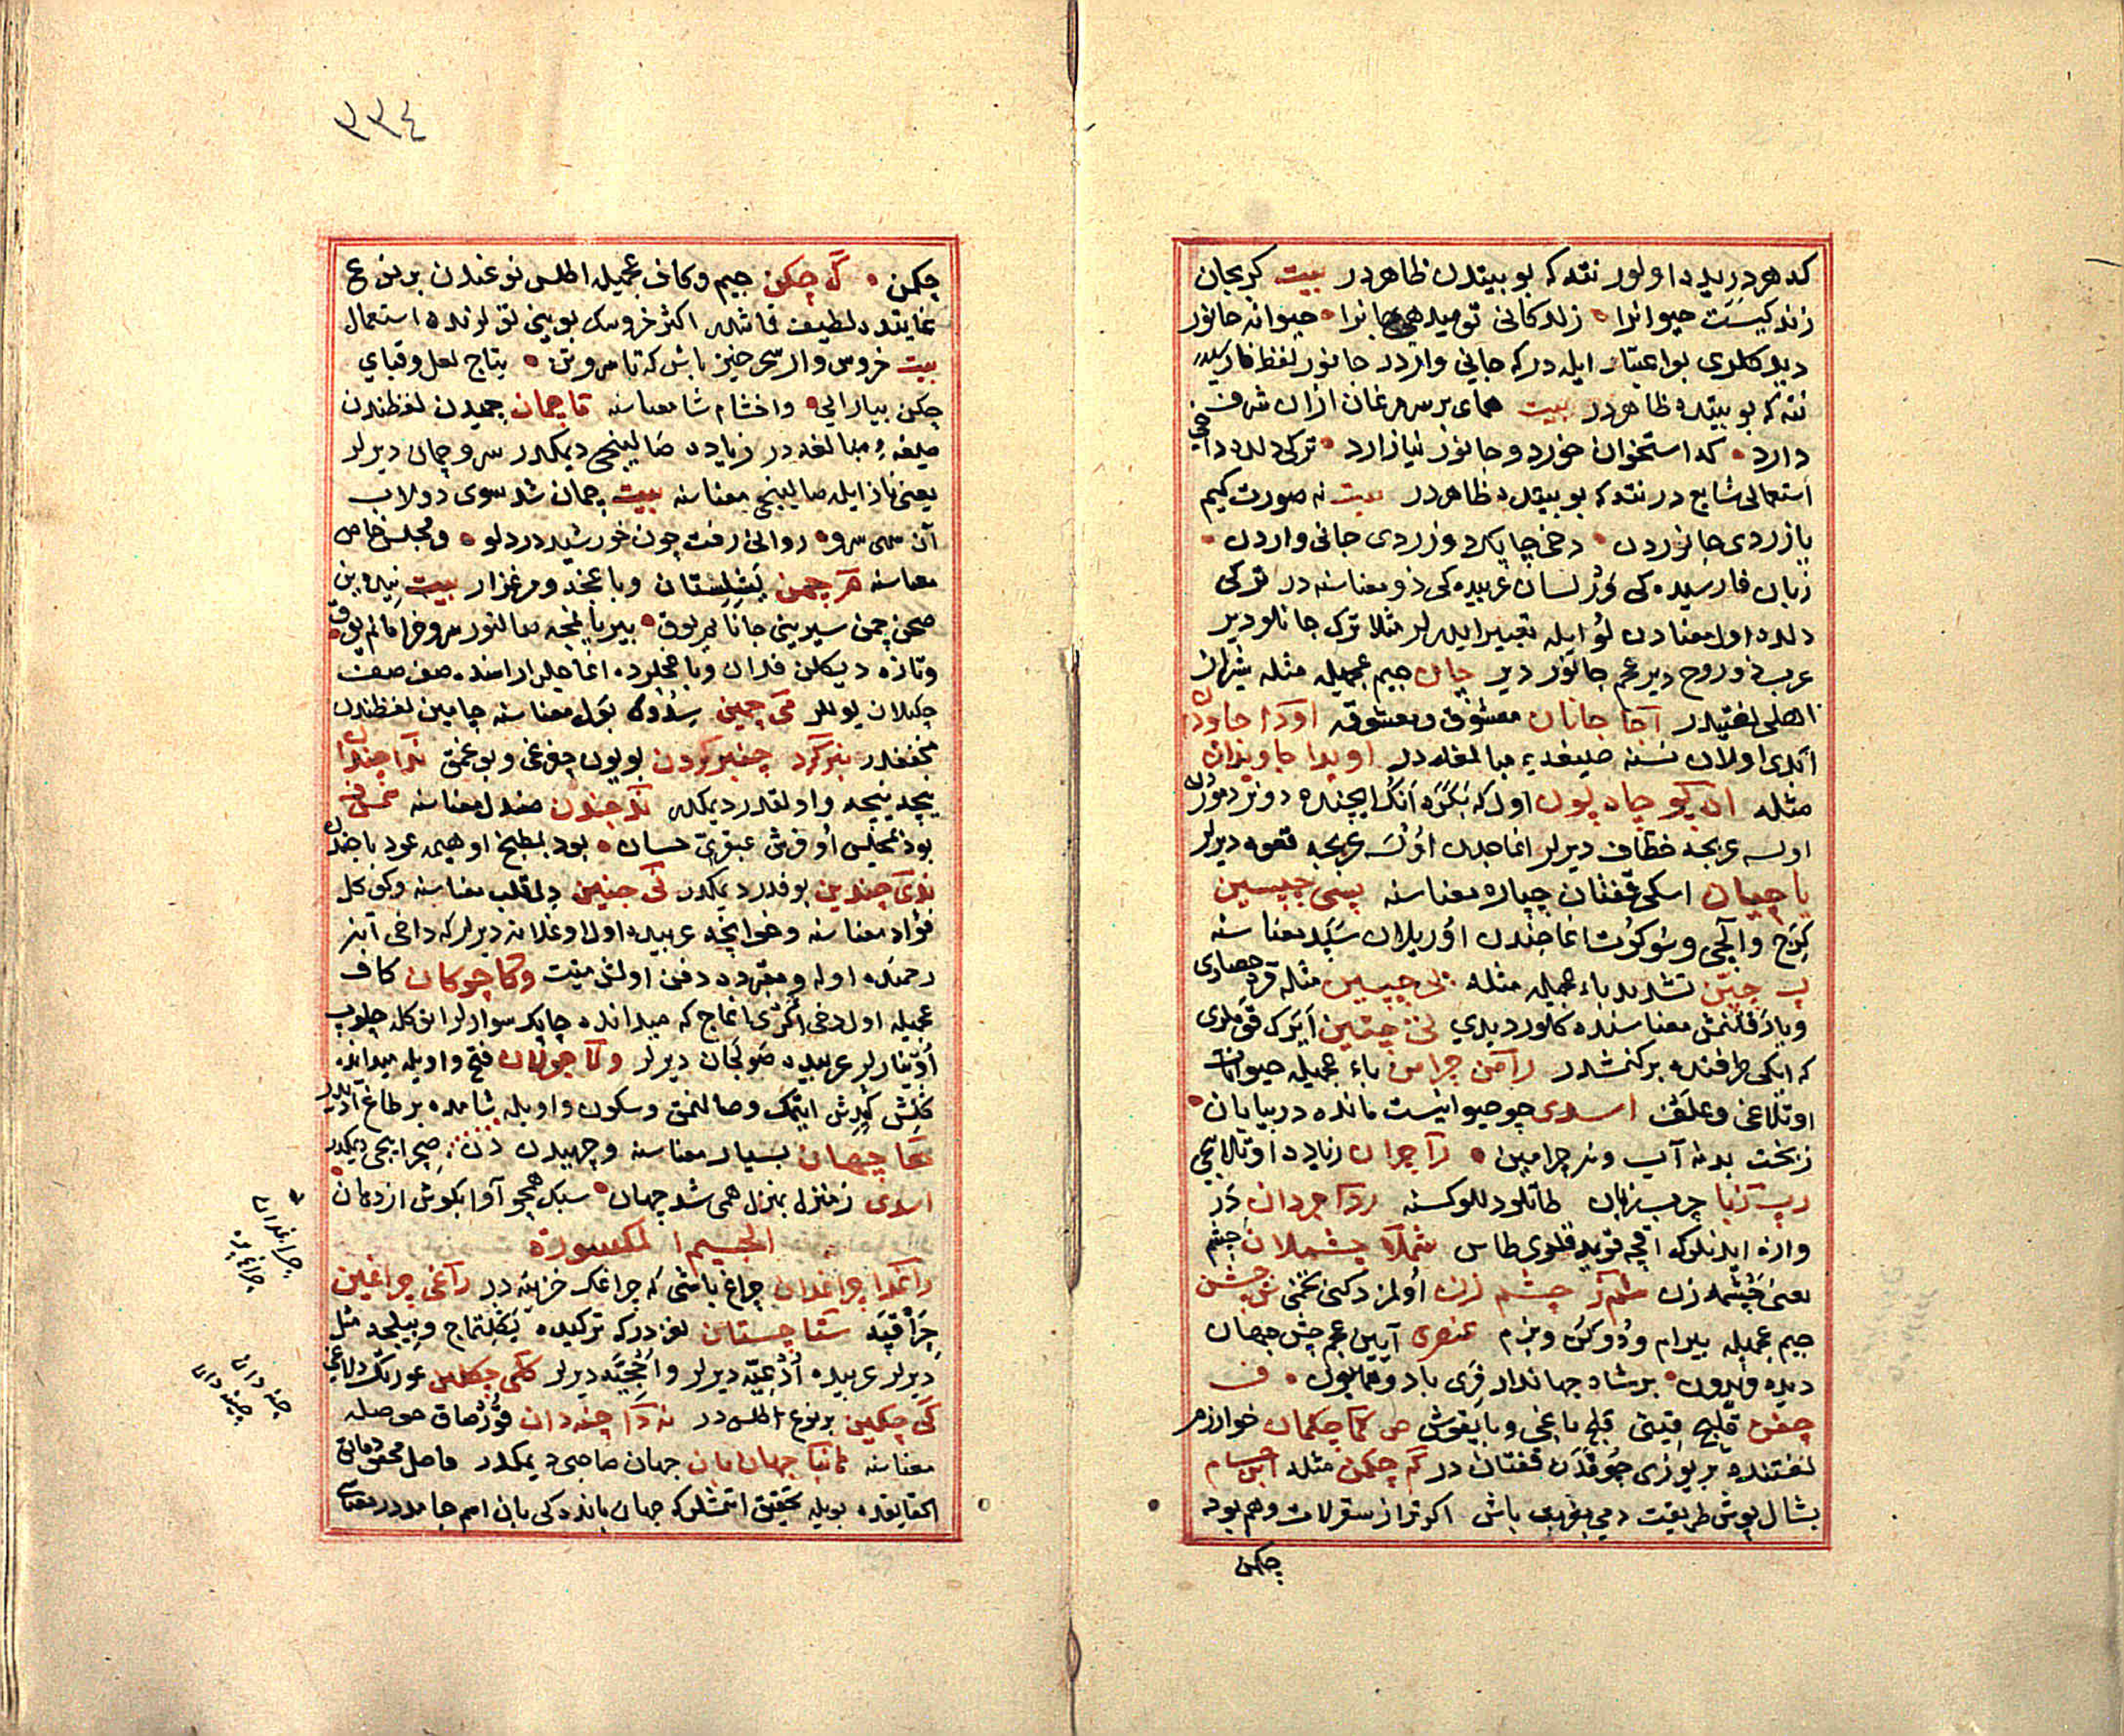 كه هر دريده اولور نته كه بو بيتدن ظاهردر بيت كريجان
زند كيست حيوانرا زندكانى توميدهى جانرا حيوانه جانور
ديدكلرى بو اعتبار ايله دركه جانى واردر جانور لفظ فارسيدر
نته كه بو بيتده ظاهردر بيت هماى بر سر مرغان ازان شرف
دارد كه استخوان خورد و جانور نيازارد تركى دلده داخى
استعمالى شايع در نته كه بو بيتده ظاهردر بيت نه صورت كيم
يازردى جانوردن دخى چابك دوزردى جانى واردن
زبان فارسيده كى ور لسان عربيده كى ذو معناسنه در تركى
دلده اول معنادن لو ايله تعبير ايدرلر مثلا ترك جانلو دير
عرب ذو روح دير عجم جانور دير چان جيم عجميله مثله شيراز
اهلى لغتيدر آجا جانان معشوق و معشوقه اودا جاودان
ابدى اولان نسنه صيغه مبالغه در اويدا جاويدان
مثله ان كيو چاه يون اول كه بكره انك ايچنده دونر دموردن
اولسه عربجه خطاف ديرلر اغاجدن اولسه عربجه قعوه ديرلر
يا چپان اسكى قفتان چپاره معناسنه پسى چپسين
كرج و الچى و سوكوت اغاجندن اوريلان سپد معناسنه
پ چپن تشديد باء عجميله مثله پى چپين مثله قره حصارى
و يارقلنمش معناسنده كلور ديدى
كه ايكى طرفنده بركنمشدر رامن چرامين باء عجميله حيوانات
اوتلاغى و علف اسدى چو حيوانيست مانده در بيابان
زبخت بد نه آب و نه چرامين را چران زياده اوتلايجى
رب زبا چرب زبان طاتلو دللو كسنه ردا چردان در
وازه ايدنلركه اقچه قويه قلرى طاس شملا چشملان چشم
يعنى چشمه زن شم ز چشم زن اولمز دكنى تخمى ش چشن
جيم عجميله بيرام و دوكن و بزم عنصرى آيين عجم چشن جهان
ديده فريدون بر شاه جهاندار فرى باد و همايون ف
چغن قليج قيتى قبله باغى و بايقوش ص كما چكمان خوارزم
لغتنده بر يوزى چوقدن قفتان در كم چكمن مثله ابن حسام
بشال پوش طريقت دمى بغربت باش اكر ترا ز سقرلات و هم بود
چكن
٣٣٤
چكمن ك چكن جيم و كاف عجميله اطلس نوعندن بر نوع
غايتده لطيف قماشدر اكثر خروسك بويينى توكلرنده استعمال
بيت خروس وار سحر خيز باش كه تا سر و تن بتاج لعل و قباى
چكن بيارايى و اخشام شا معناسنه قا چمان چميدن لفظندن
صيغه مبالغه در زياده صالينجى ديمكدر سرو چمان ديرلر
يعنى ناز ايله صالينجى معناسنه بيت چمان شد سوى دولاب
آن سهى سرو روانى رفت چون خورشيد در دلو و مجلس خاص
معناسنه مر چمن يشلستان و باغچه و مرغزار بيت
صحن چمن سيرينى جانا يوق بير يالنجه صالنور سرو خرامانم يوق
و تازه ديكلن فدان و باغچلرده اغاجلر اراسنده صف صف
چكيلان يوللر مى چمين سدوك بول معناسنه چامين لفظندن
مخففدر بنركرد چنبر كردن بويون چنبرى و بوغمق ندا چندان
نيچه نيچه و اول قدر ديمكدر ند چندن صندل معناسنه شمس فخرى
بود بمجلس او فرش عبقرى حسان بود بمطبخ او هيمه عود يا چندن
ندى چندين بو قدر ديمكدر نى جنين دل قلب معناسنه و كوكل
فؤاد معناسنه و خوابجه عربيده اول اوغلانه ديرلر كه داخى آنه
رحمنده اوله و مقبرده دفن اولنمش ميت و كا چوكان كاف
عجميله اول دخى اكرى اغاج كه ميدانده چابك سوارلر انوكله چلوب
اوينارلر عربيده صولجان ديرلر ولا جولان فتح واويله ميدانده
كلش كيدش ايتمك و صالنمق و سكون واويله شامده بر طاغ آديدر
ها چهان بسيار معناسنه و جهيدن دن صچرايجى ديمكدر
اسدى ز منزل بمنزل همى شد جهان سبك همچو آوا بكوش از دهان
الجيم المكسورة
راغدا چراغدان چراغ باشى كه چراغك خزينه در راغى چراغين
چراقيه ستا چستان لغزدركه تركيده بلمجه و بيلمجه مثل
ديرلر عربيده ادعيه ديرلر و احجيه ديرلر كلى چكلين عورتك دلاغى
كى چكين بر نوع اطلس در نه دا چنه دان قورصاق حوصله
معناسنه هانبا جهان بان جهان صاحبى ديمكدر فاضل محقق دقائق
الحقايقده بويله تحقيق اتمشدر كه جهان بانده كى بان اسم جامد در معناسى
چراغدان
چراغ پايه
چنه دان
چينه دان